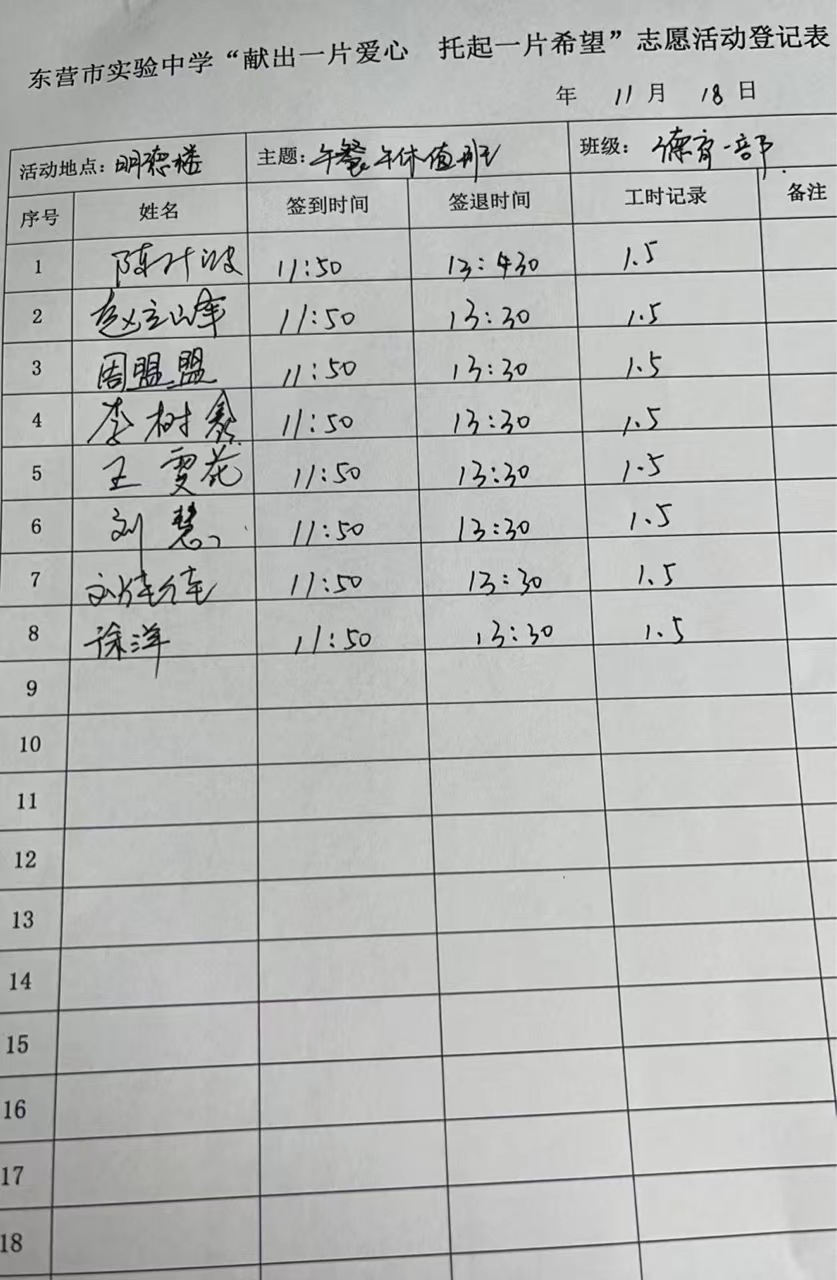 东营市实验中学“献出一片爱心 托起一片希望”志愿活动登记表
年 11月 18日
活动地点：明德楼 主题：午餐午休值班 班级：德育一部
序号 姓名 签到时间 签退时间 工时记录 备注
1 陈叶波 11:50 13:430 1.5
2 赵立山军 11:50 13:30 1.5
3 周盟盟 11:50 13:30 1.5
4 李树鑫 11:50 13:30 1.5
5 王雯花 11:50 13:30 1.5
6 刘慧 11:50 13:30 1.5
7 刘 11:50 13:30 1.5
8 徐洋 11:50 13:30 1.5
9
10
11
12
13
14
15
16
17
18